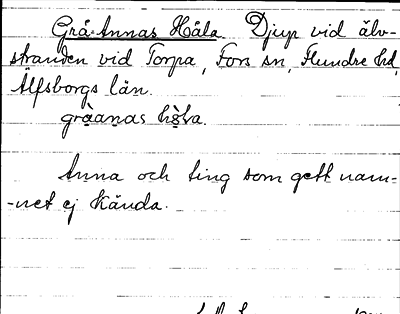 Grå-Annas Håla. Djup vid älv-
stranden vid Torpa, Fors sn, Flundre hd,
Älfsborgs län.
gråanas håla.
Anna och ting som gett nam-
-net ej kända.